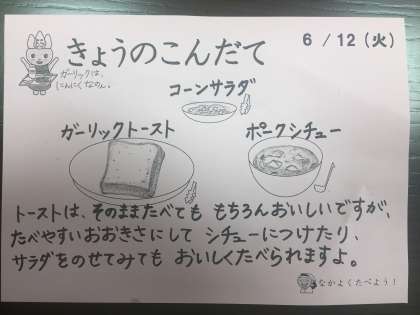 きょうのこんだて
6/12(火)
ガーリックは、
にんにくなのん。
コーンサラダ
ガーリックトースト
ポークシチュー
トーストは、そのままたべても もちろんおいしいですが、
たべやすいおおきさにして シチューにつけたり、
サラダをのせてみても おいしくたべられますよ。
なかよくたべよう!